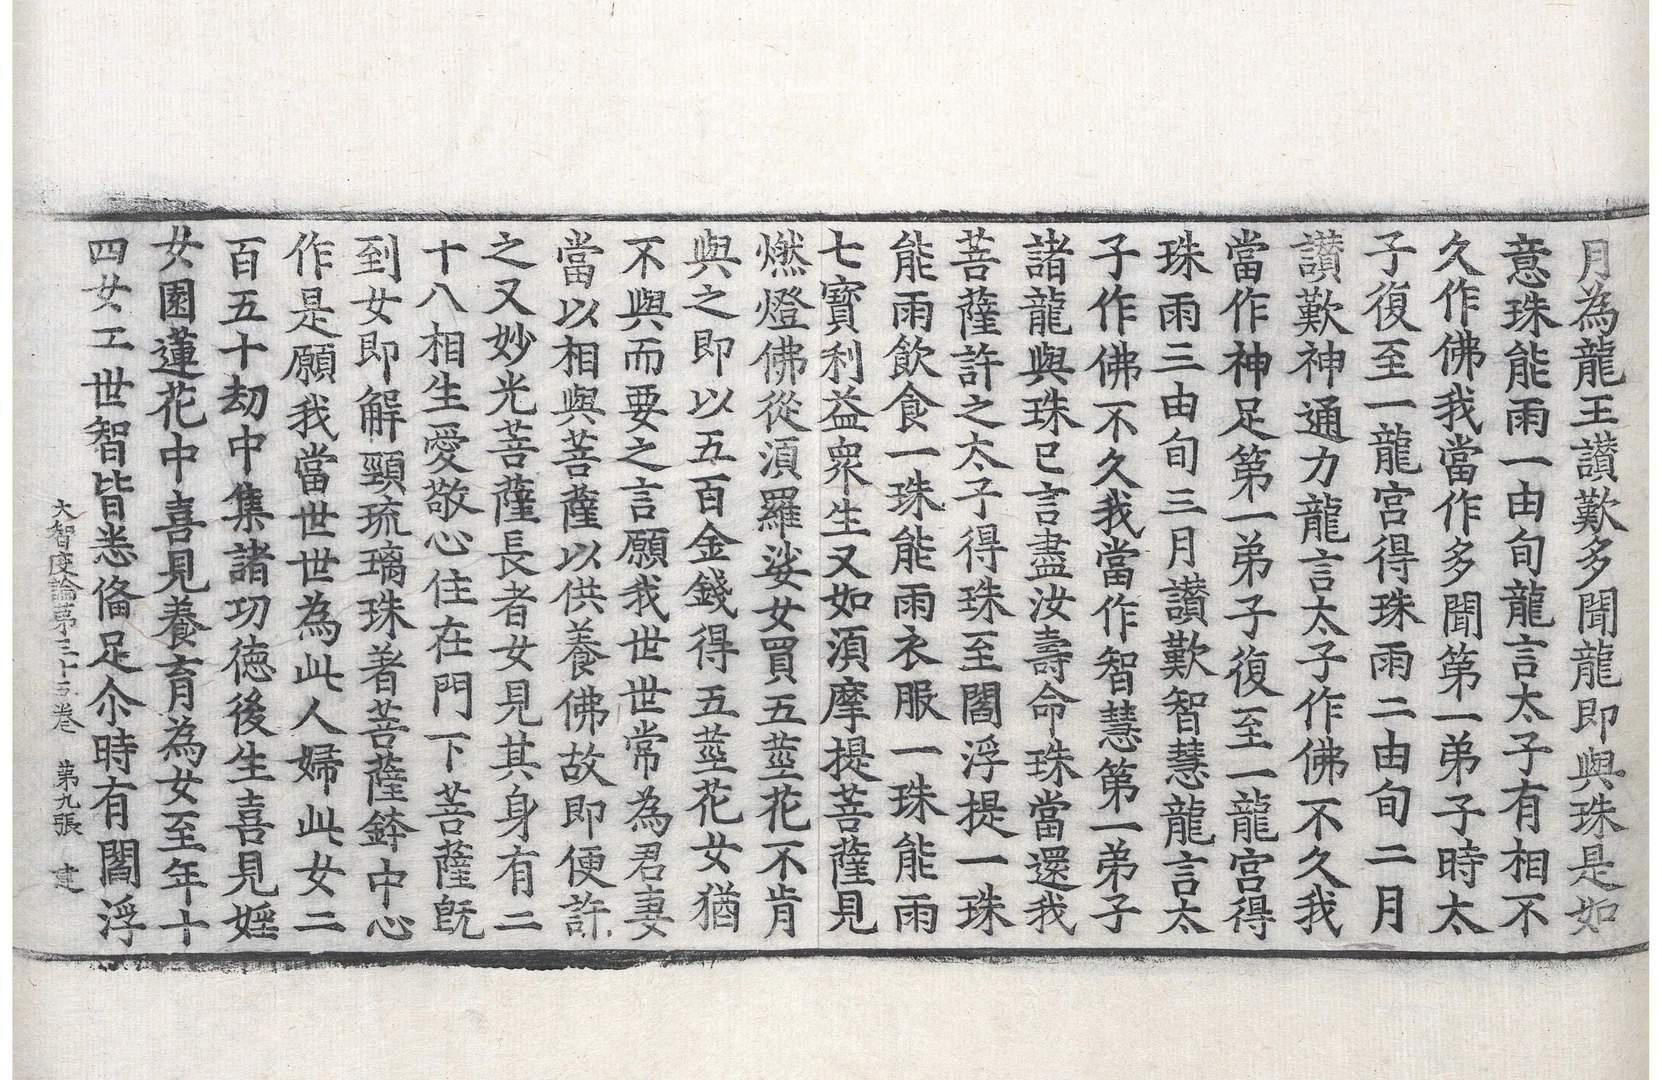 月為龍王讃歎多聞龍即與珠是如
意珠能雨一由旬龍言太子有相不
久作佛我當作多聞第一弟子時太
子復至一龍宮得珠雨二由旬二月
讃歎神通力龍言太子作佛不久我
當作神足第一弟子復至一龍宮得
珠雨三由旬三月讃歎智慧龍言太
子作佛不久我當作智慧第一弟子
諸龍與珠已言盡汝壽命珠當還我
菩薩許之太子得珠至閻浮提一珠
能雨飲食一珠能雨衣服一珠能雨
七寶利益衆生又如湏摩提菩薩見
燃燈佛從湏羅娑女買五莖花不肯
與之即以五百金錢得五莖花女猶
不與而要之言願我世世常為君妻
當以相與菩薩以供養佛故即便許
之又妙光菩薩長者女見其身有二
十八相生愛敬心住在門下菩薩旣
到女即解頸琉璃珠著菩薩鉢中心
作是願我當世世為此人婦此女二
百五十劫中集諸功徳後生喜見婬
女園蓮花中喜見養育為女至年十
四女工世智皆悉俻足尒時有閻浮
大智度論第三十五卷 第九張 建